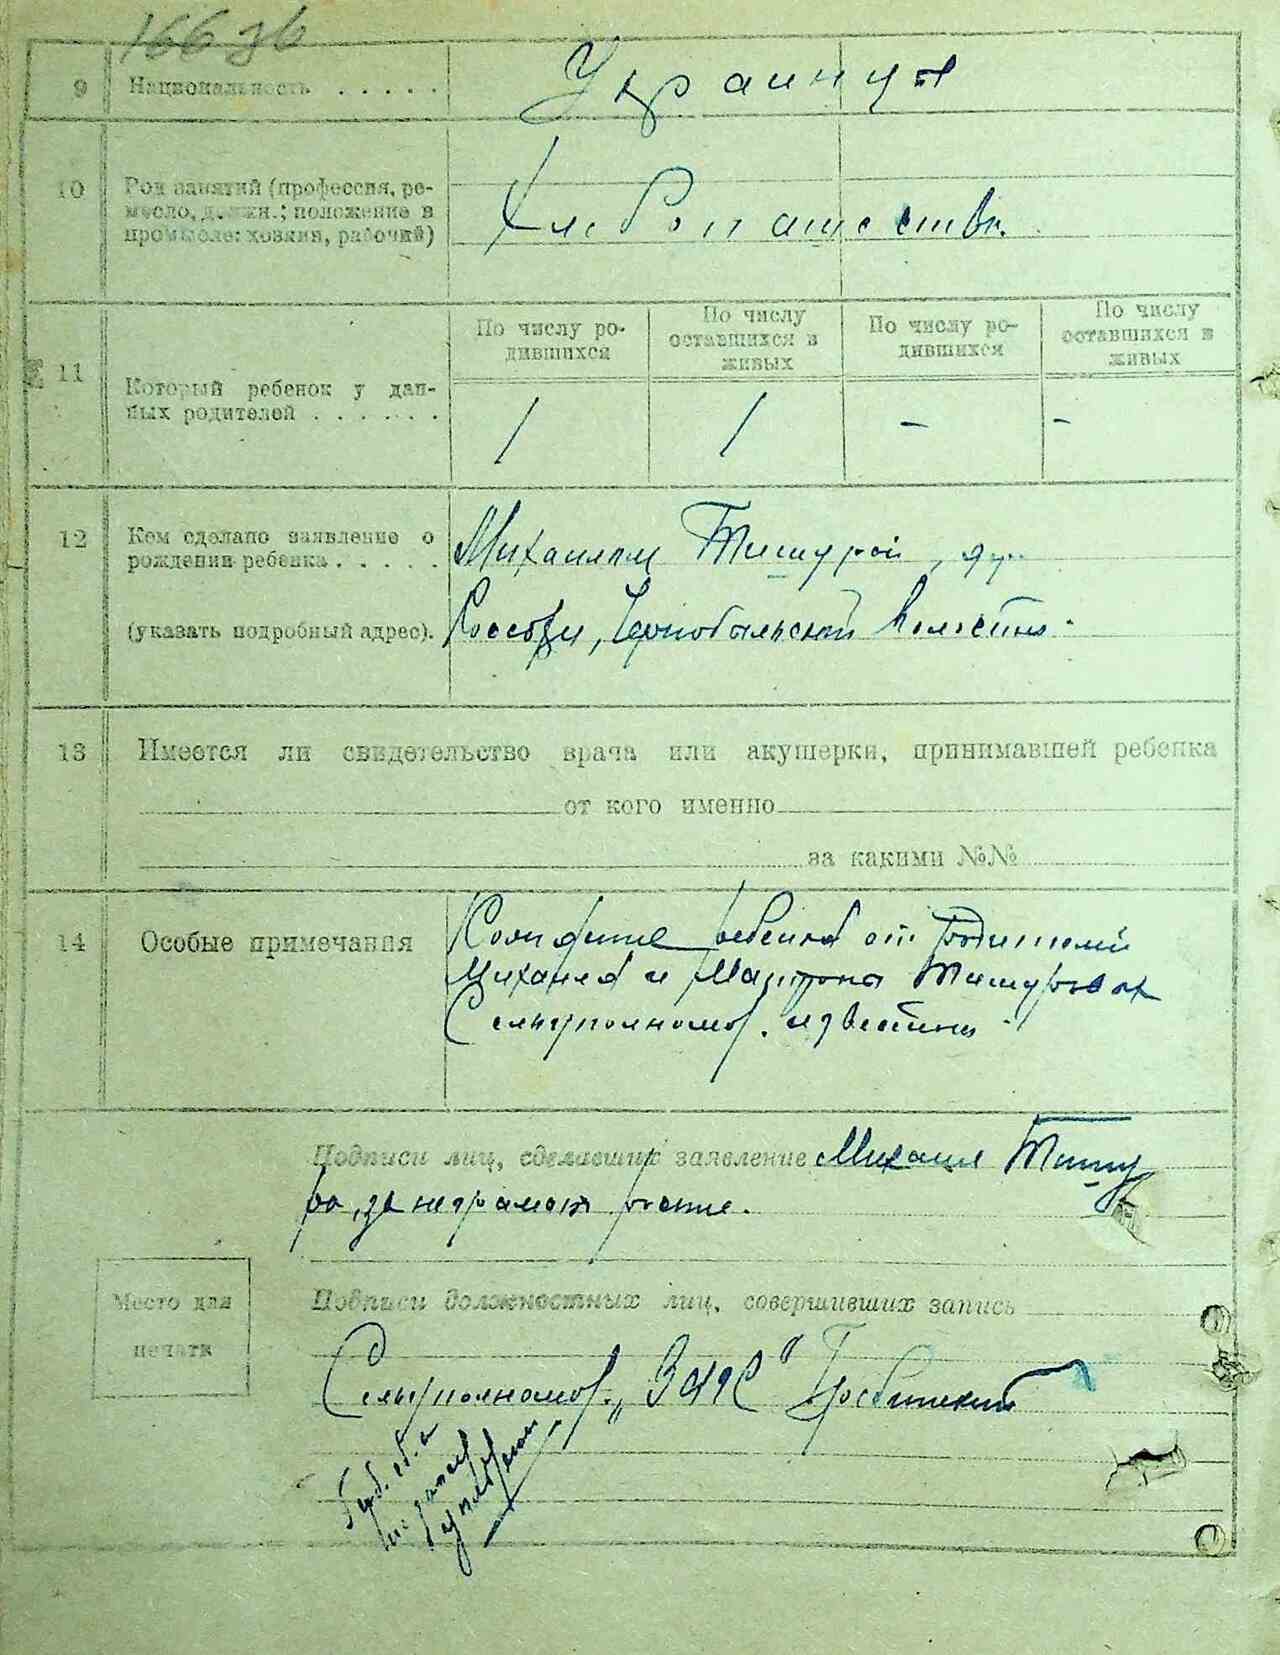 166 зв
9 Национальность . . . . . Украинцы
10 Род занятий (профессия, ре-
месло, должн.; положение в
промысле: хозяин, рабочий) Хлебопашество.
11 Который ребенок у дан-
ных родителей . . . . . .
По числу ро-
дившихся
По числу
оставшихся в
живых
По числу ро-
дившихся
По числу
оставшихся в
живых
1 1 - -
12 Кем сделано заявление о
рождении ребенка . . . . .
(указать подробный адрес).
Михаилом Тишурой, дер.
Россохи, Чернобыльской волости.
13 Имеется ли свидетельство врача или акушерки, принимавшей ребенка
от кого именно
за какими №№
14 Особые примечания
Рождение ребенка от родителей
Михаила и Матроны Тишуровых
Сельуполномоч. известно.
Подписи лиц, сделавших заявление Михаил Тишу
ра, за неграмотн
Место для
печати
Подписи должностных лиц, совершивших запись
Сельуполномоч. „ЗАГС"